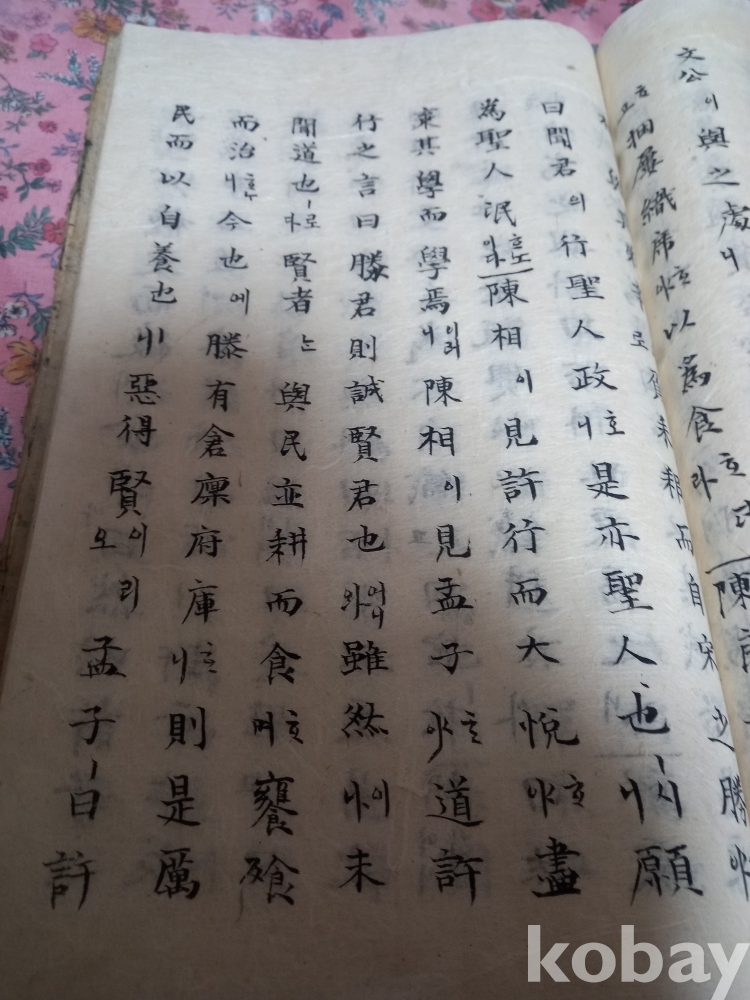 文公이與之處
捆屨織席호야以爲食호
耒耜而自宋之滕
曰聞君의行聖人政호니是亦聖人也ㅣ시니願
為聖人氓호노이다陳相이見許行而大悅호야盡
棄其學而學焉이러니陳相이見孟子호야道許
行之言曰滕君則誠賢君也어니와雖然이나未
聞道也ㅣ로다賢者는與民並耕而食호며饔飧
而治호ᄂᆞ니今也에滕有倉廩府庫호니則是厲
民而以自養也ㅣ니惡得賢이리오孟子ㅣ曰許
kobay